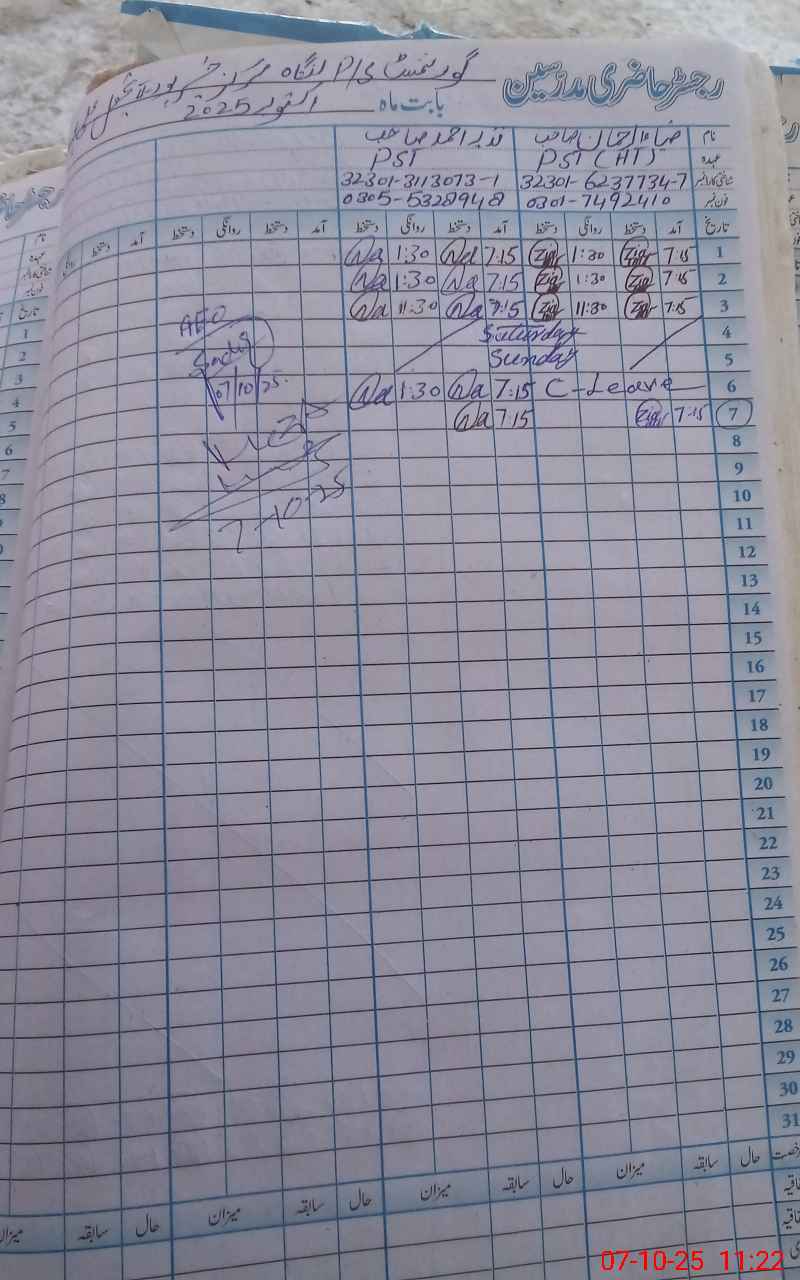 رجسٹر حاضری مدرسین
گورنمنٹ P/S لنگاہ مرکز
بابت ماہ اکتوبر 2025
نام ضیاء الرحمان صاحب نذیر احمد صاحب
عہدہ PST (HT) PST
شناختی کارڈ نمبر 32301-6237734-7 32301-3113073-1
فون نمبر 0301-7492410 0305-5328948
تاریخ آمد دستخط روانگی دستخط آمد دستخط روانگی دستخط آمد دستخط روانگی دستخط آمد دستخط
1 7:15 Zia 1:30 Zia 7:15 Na 1:30 Na
2 7:15 Zia 1:30 Zia 7:15 Na 1:30 Na
3 7:15 Zia 11:30 Zia 7:15 Na 11:30 Na
4 Saturday
5 Sunday
6 C-Leave 7:15 Na 1:30 Na
7 7:15 Zia 7:15 Na
8
9
10
11
12
13
14
15
16
17
18
19
20
21
22
23
24
25
26
27
28
29
30
31
AEO
07/10/25
7-10-25
رخصت حال سابقہ میزان حال سابقہ میزان حال سابقہ میزان حال سابقہ میزان
07-10-25 11:22